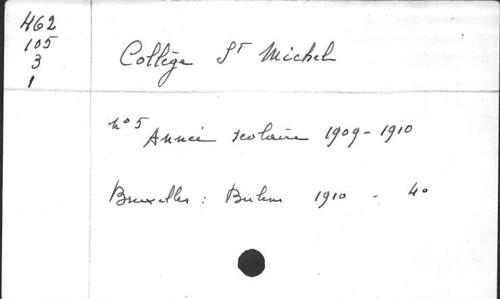 462
105
3
1
Collège St Michel
No 5
Année scolaire 1909-1910
Bruxelles : 1910 - 4o